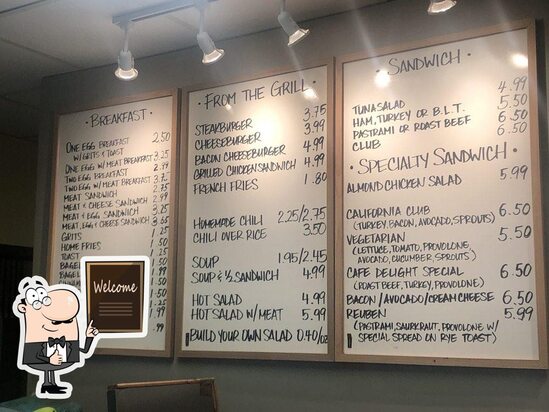 · BREAKFAST ·
ONE EGG BREAKFAST 2.50
W/GRITS & TOAST
ONE EGG W/ MEAT BREAKFAST 3.25
TWO EGG BREAKFAST
TWO EGG W/ MEAT BREAKFAST 3.75
MEAT SANDWICH
MEAT & CHEESE SANDWICH 2.99
MEAT & EGG SANDWICH 3.25
MEAT, EGG & CHEESE SANDWICH
GRITS
HOME FRIES 1.50
TOAST
BAGEL
BAGEL
.99
Welcome
· FROM THE GRILL ·
STEAKBURGER 3.75
CHEESEBURGER 3.99
BACON CHEESEBURGER 4.99
GRILLED CHICKEN SANDWICH 4.99
FRENCH FRIES 1.80
HOMEMADE CHILI 2.25/2.75
CHILI OVER RICE 3.50
SOUP 1.95/2.45
SOUP & ½ SANDWICH 4.99
HOT SALAD 4.99
HOT SALAD W/ MEAT 5.99
BUILD YOUR OWN SALAD 0.40/OZ
· SANDWICH ·
TUNA SALAD 4.99
HAM, TURKEY OR B.L.T. 5.50
PASTRAMI OR ROAST BEEF 5.50
CLUB 6.50
· SPECIALTY SANDWICH ·
ALMOND CHICKEN SALAD 5.99
CALIFORNIA CLUB 6.50
(TURKEY, BACON, AVOCADO, SPROUTS)
VEGETARIAN 5.50
(LETTUCE, TOMATO, PROVOLONE,
AVOCADO, CUCUMBER, SPROUTS)
CAFE DELIGHT SPECIAL 6.50
(ROAST BEEF, TURKEY, PROVOLONE)
BACON/AVOCADO/CREAM CHEESE 6.50
REUBEN 5.99
(PASTRAMI, SAURKRAUT, PROVOLONE W/
SPECIAL SPREAD ON RYE TOAST)